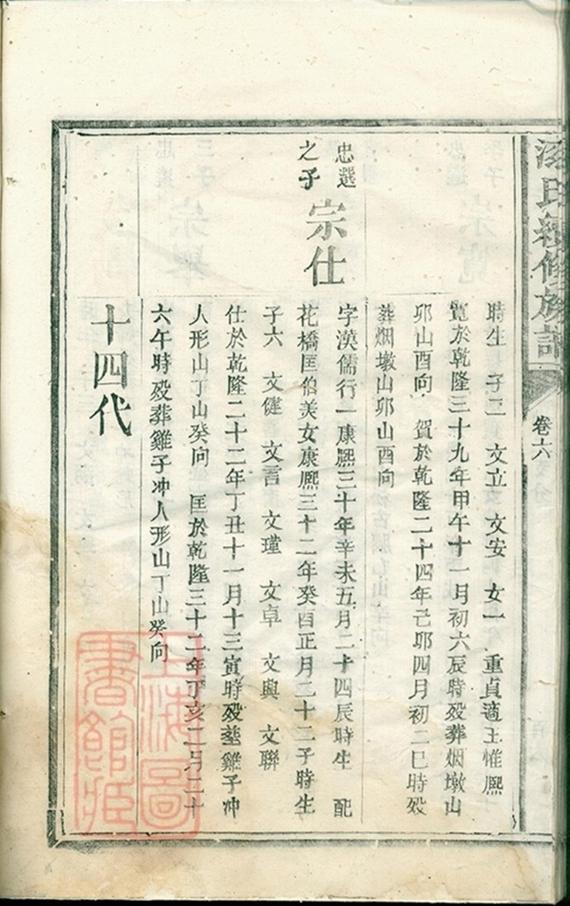 氏續修族譜
卷六
時生 子二 文立 文安 女一 重貞適王惟熙
覽於乾隆三十九年甲午十一月初六辰時歿葬烟墩山
卯山酉向 賀於乾隆二十四年己卯四月初二巳時歿
葬烟墩山卯山酉向
忠選
之子
宗仕
字漢儒行一康熙三十年辛未五月二十四辰時生 配
花橋匡伯美女康熙三十二年癸酉正月二十二子時生
子六 文健 文言 文瑾 文卓 文興 文聯
仕於乾隆二十二年丁丑十一月十三寅時歿塟雞子冲
人形山丁山癸向 匡於乾隆三十二年丁亥二月二十
六午時歿葬雞子冲人形山丁山癸向
十四代
上海圖
書館